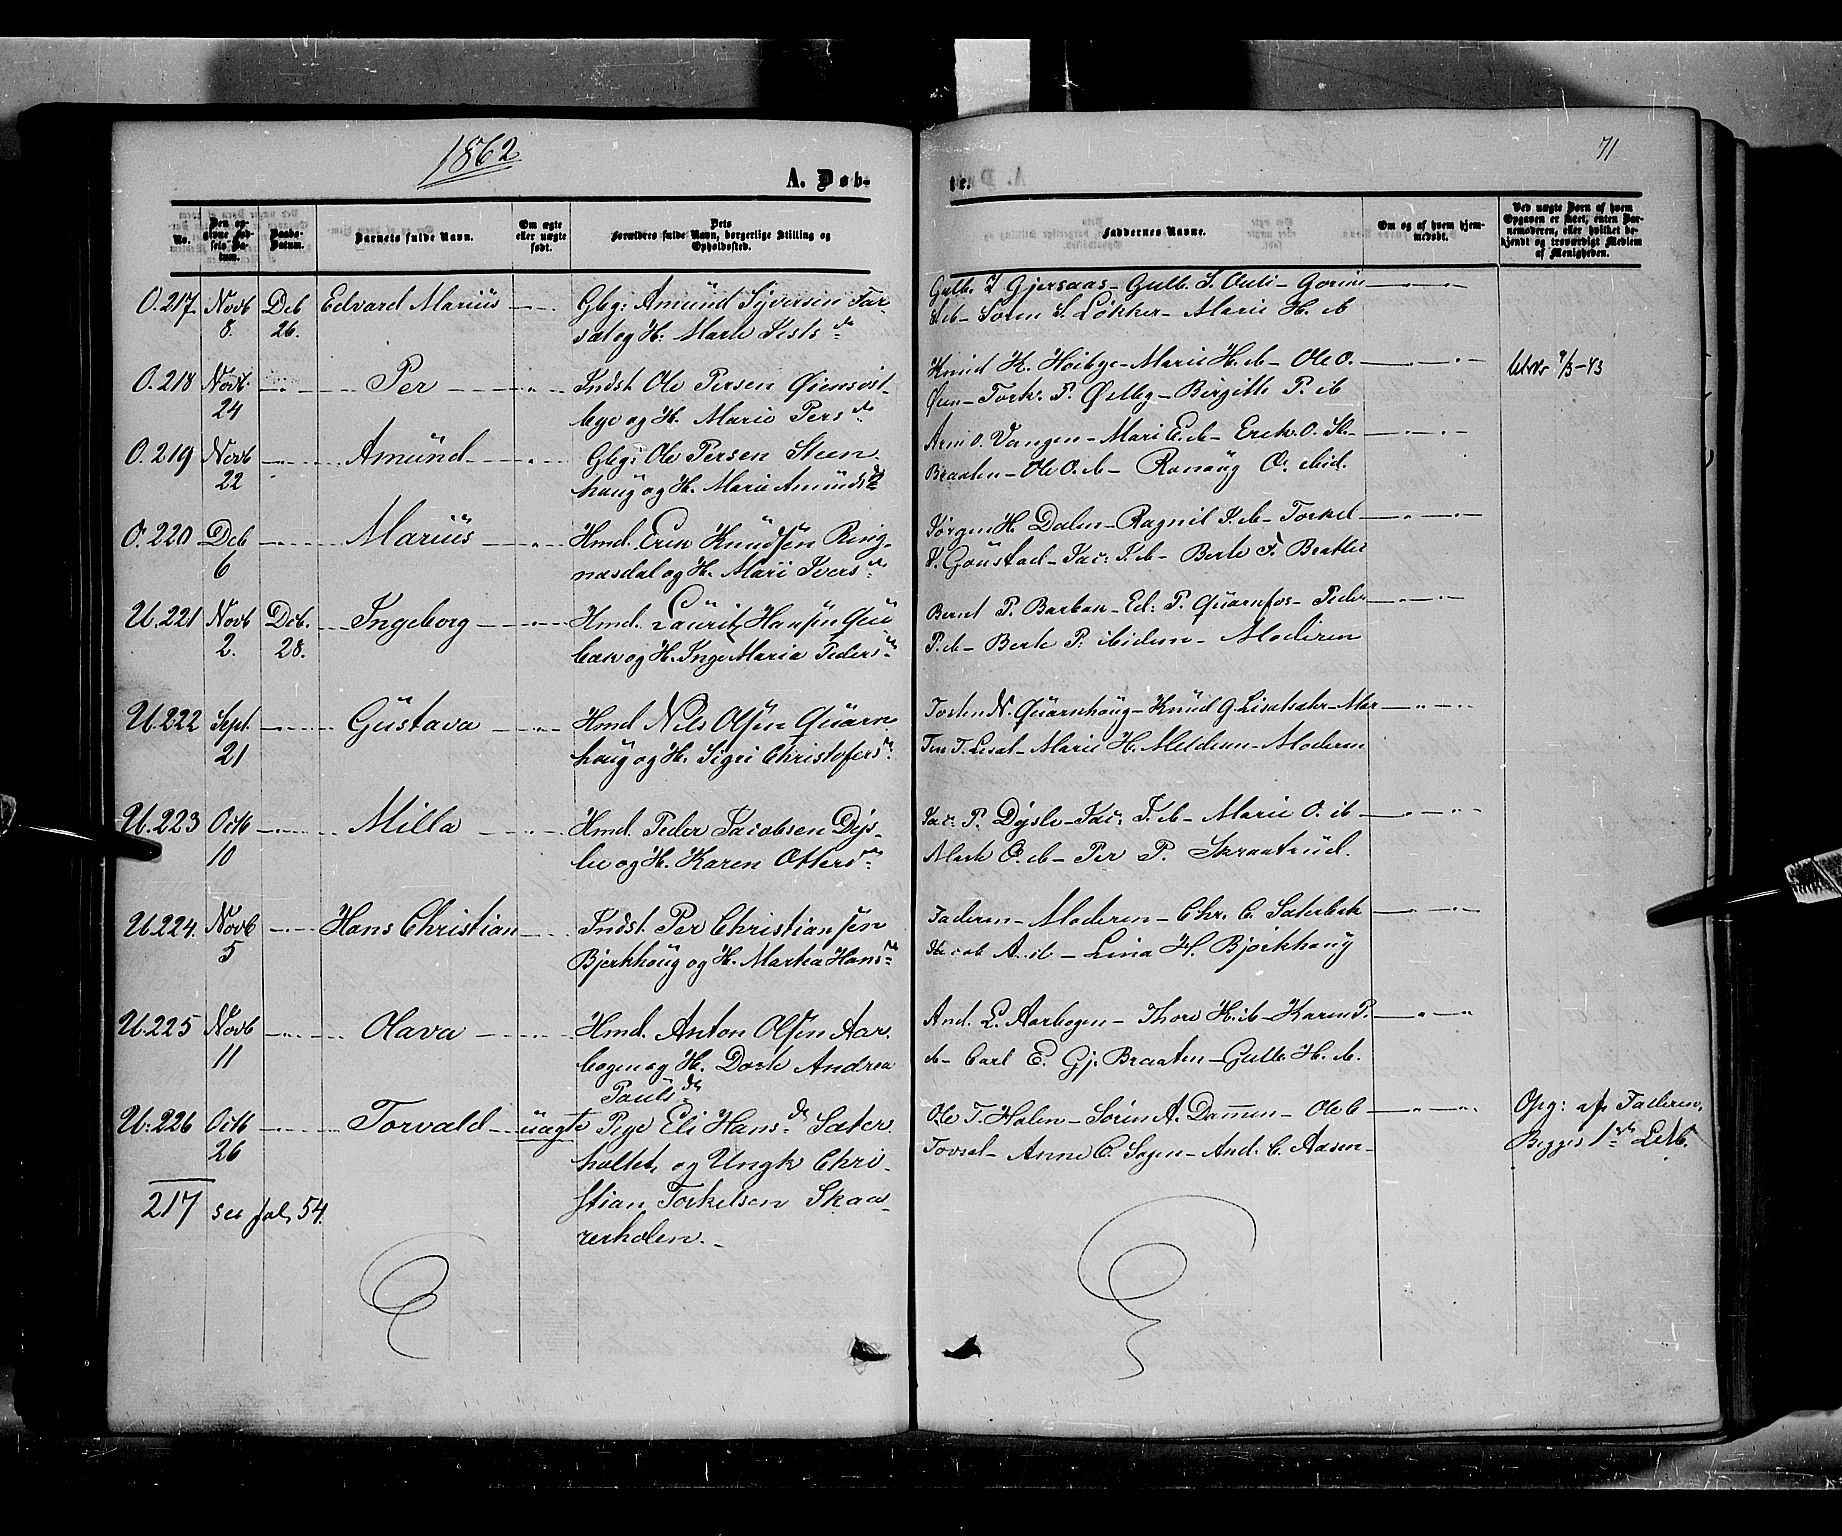 1862
71
A. Døb-
te.
No.
Den opgivne Fødsels Datum.
Daabs-Datum.
Barnets fulde Navn.
Om ægte eller uægte født.
Dets Forældres fulde Navn, borgerlige Stilling og Opholdssted.
Faddernes Navne.
Om og af hvem hjemmedøbt.
Ved uægte Børn af hvem Opgaven er skeet, enten Barnemoderen, eller hvilket bekjendt og troværdigt Medlem af Menigheden.
O. 217 Novb 8. Deb 26. Edvard Marius
Gbg: Amünd Syversen Far
sæt og H. Marte Jests d.
Gulb. I Gjersaas - Gulb. S. - Gorine
ib - Soren S. Løkker - Marie H. ib
O. 218 Novb. 24 Per
Indst. Ole Persen Øiensvit
bye og H. Marie Pers d.
Knud K. Høibye - Marie H. ib - Ole O.
Øien - Tork. P. Østby - Birgitte P. ib
9/3-43
O. 219 Novb 22 Amünd
Gbg: Ole Persen Steen
haüg og H. Marie Amünds d.
Arne O. Vangen - Mari E. ib - Erik O. St.
Braaten - Ole O. ib - Ronaüg O. ibid.
O. 220 Deb 6 Mariüs
Hmd. Erik Knüdsen Ring-
næsdal og H. Mari Ivers d.
Jørgen H. Dalen - Ragnil J. ib - Torkel
K. Goüstad - Jac: T. ib - Berte F.
U. 221 Novb 2. Deb. 28. Ingeborg
Hmd. Laüritz Hansen Quü
bak og H. Inge Maria Peders d.
Bernt P. Barbak - Ed: P. Quarnfos - Peder
P. ib - Berte P. ibidem - Moderen
U. 222 Sept 21 Güstava
Hmd Nils Olsen Quarn
haüg og H. Sigri Christofers d.
Torsten N. Quarnhaüg - Knüd G. Lisetsæter - Mor
Ten T. Liset - Marie H. Meldeum - Moderen
U. 223 Octb 10 Milla
Hmd. Peder Jacobsen Dys-
lie og H. Karen Otters d.
Jac: P. Dysle - Jac: J. ib - Marie O. ib
Marte O. ib - Per P. Skraatrüd.
U. 224. Novb 5 Hans Christian
Indst. Per Christiansen
Bjerkhaüg og H. Martea Hans d.
Faderen - Moderen - Chr. C. Sæterbak
Jacob A. ib - Lina H. Bjørkhaüg
U. 225 Novb 11 Olava
Hmd. Anton Olsen Aar-
bogen og H. Dorte Andrea
Paüls d.
And. L. Aarbogen - Thore H. ib - Karen P.
ib - Carl E. Gj. Braaten - Gulb. H. ib.
U. 226 Octb 26 Torvald uægte
Pige Eli Hans d. Sæter
holtet, og Ungk Chri-
stian Torkelsen Skaa-
rerholen.
Ole T. Holen - Søren A. Dammen - Ole C
Torsæt - Anne C. Sagen - And. C. Aasen
Opg: af Faderen,
Begges 1ste Leib.
217 see fol. 54.